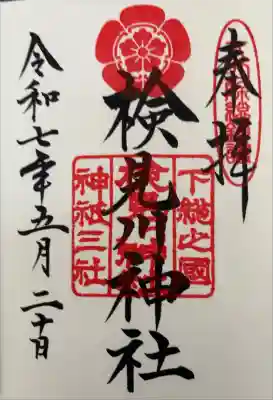 奉拝
検見川神社
下総之國
神社三社
令和七年五月二十日